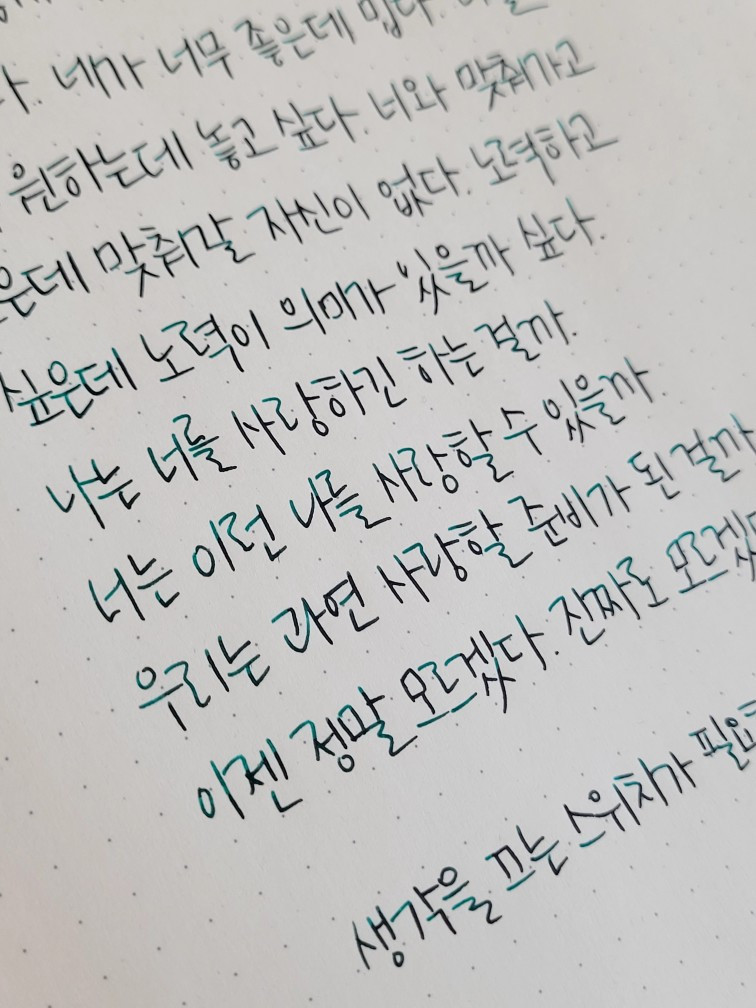 네가 너무 좋은데 밉다.
원하는데 놓고 싶다. 너와 맞춰가고
은데 맞춰갈 자신이 없다. 노력하고
싶은데 노력이 의미가 있을까 싶다.
나는 너를 사랑하긴 하는 걸까.
너는 이런 나를 사랑할 수 있을까.
우리는 과연 사랑할 준비가 된 걸까
이젠 정말 모르겠다. 진짜로 모르겠
생각을 끄는 스위치가 필요